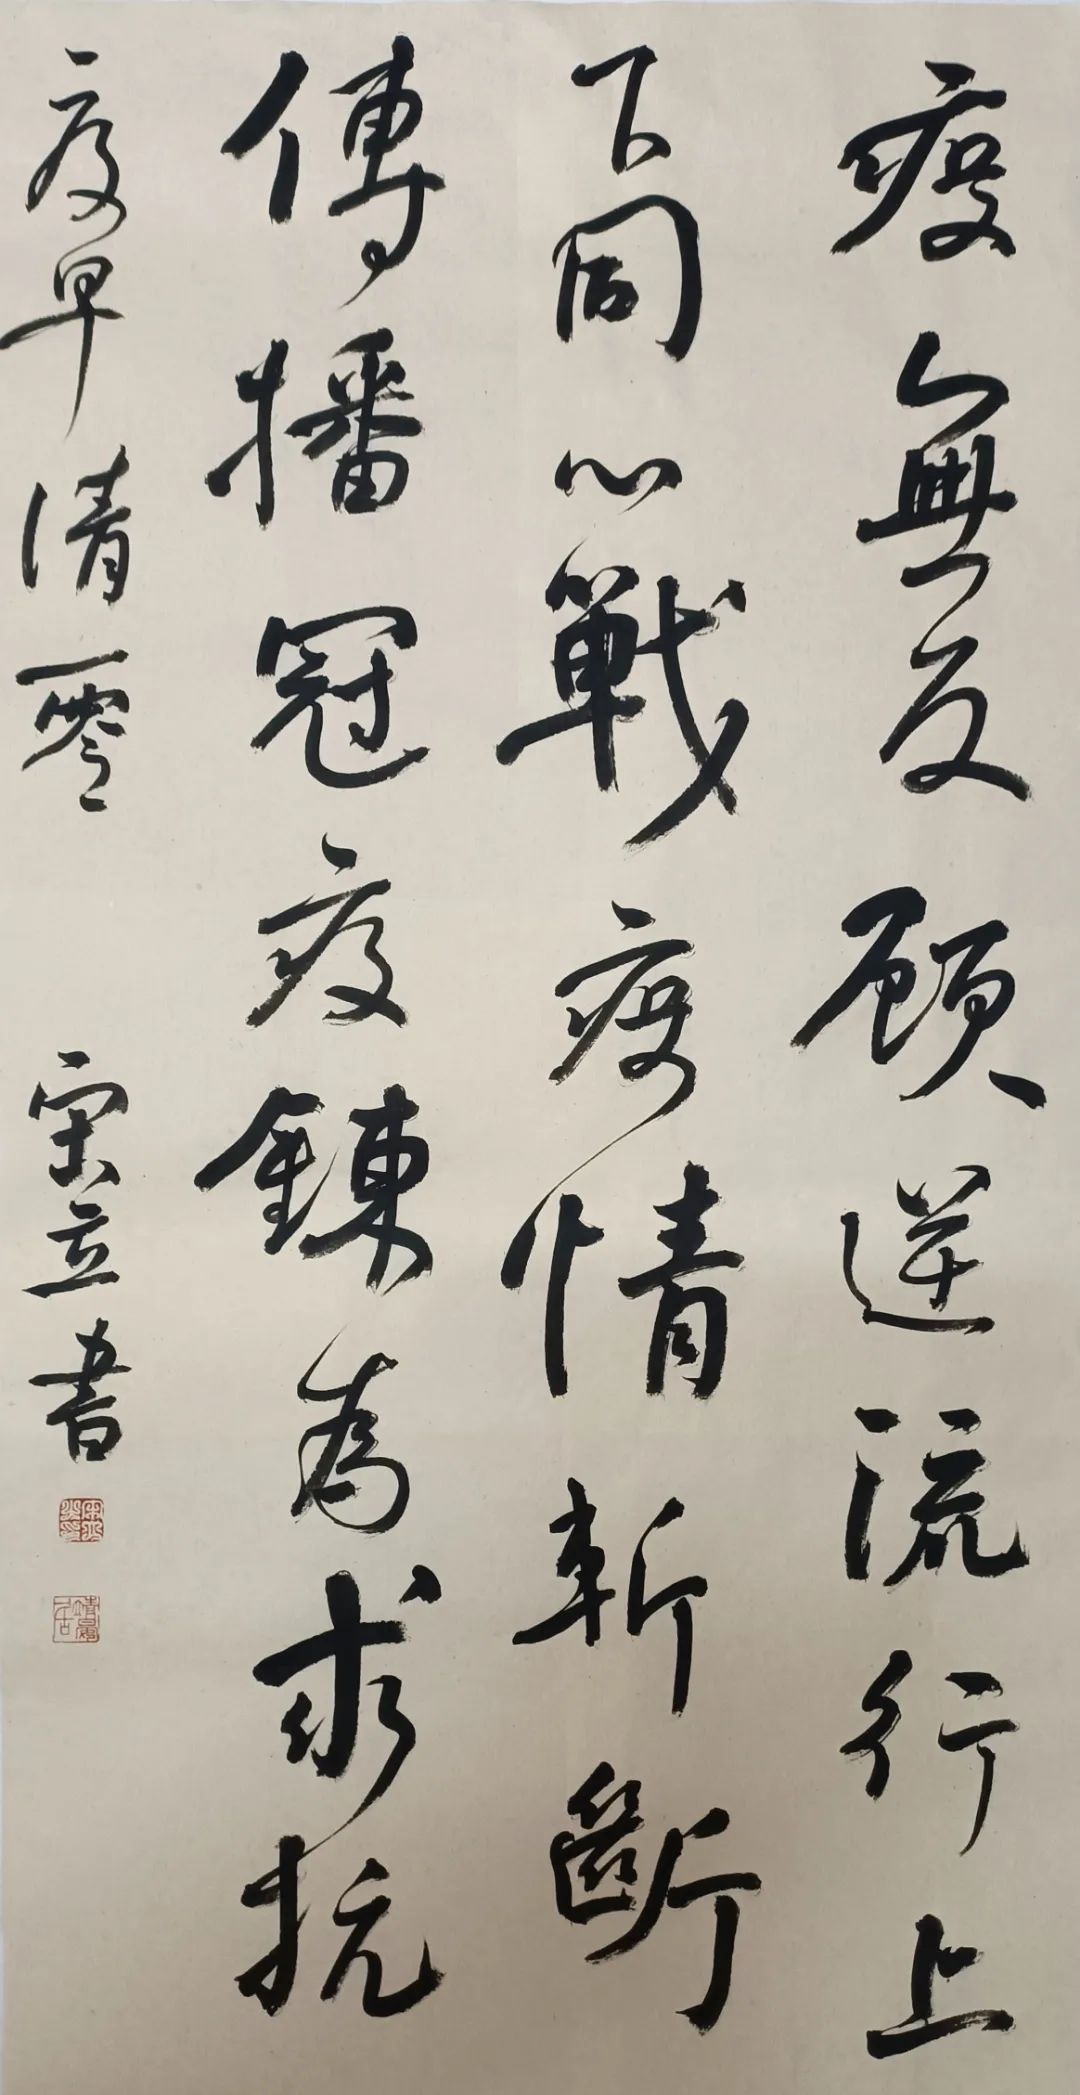 疫無反顧逆流行上
下同心戰疫情斬斷
傳播冠疫鍊為求抗
疫早清零
宋立書